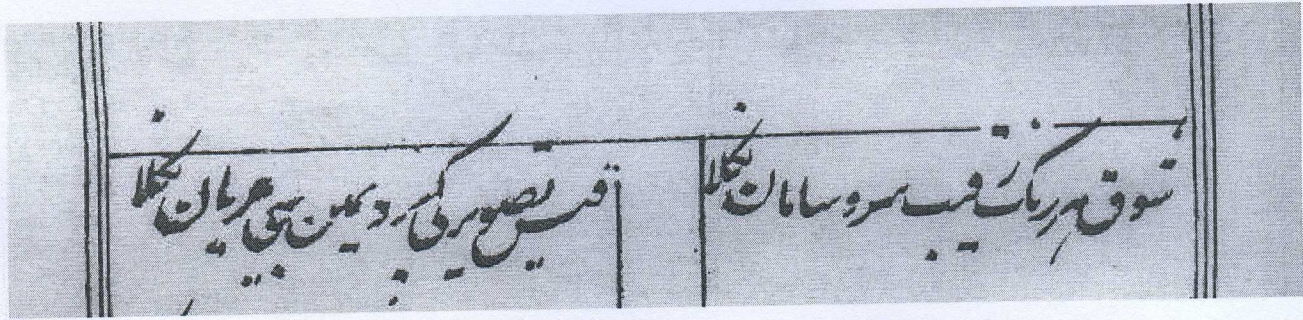 شوق ہر رنگ رقیب سر و سامان نکلا
قیس تصویر کی پردیمین بہی عریان نکلا